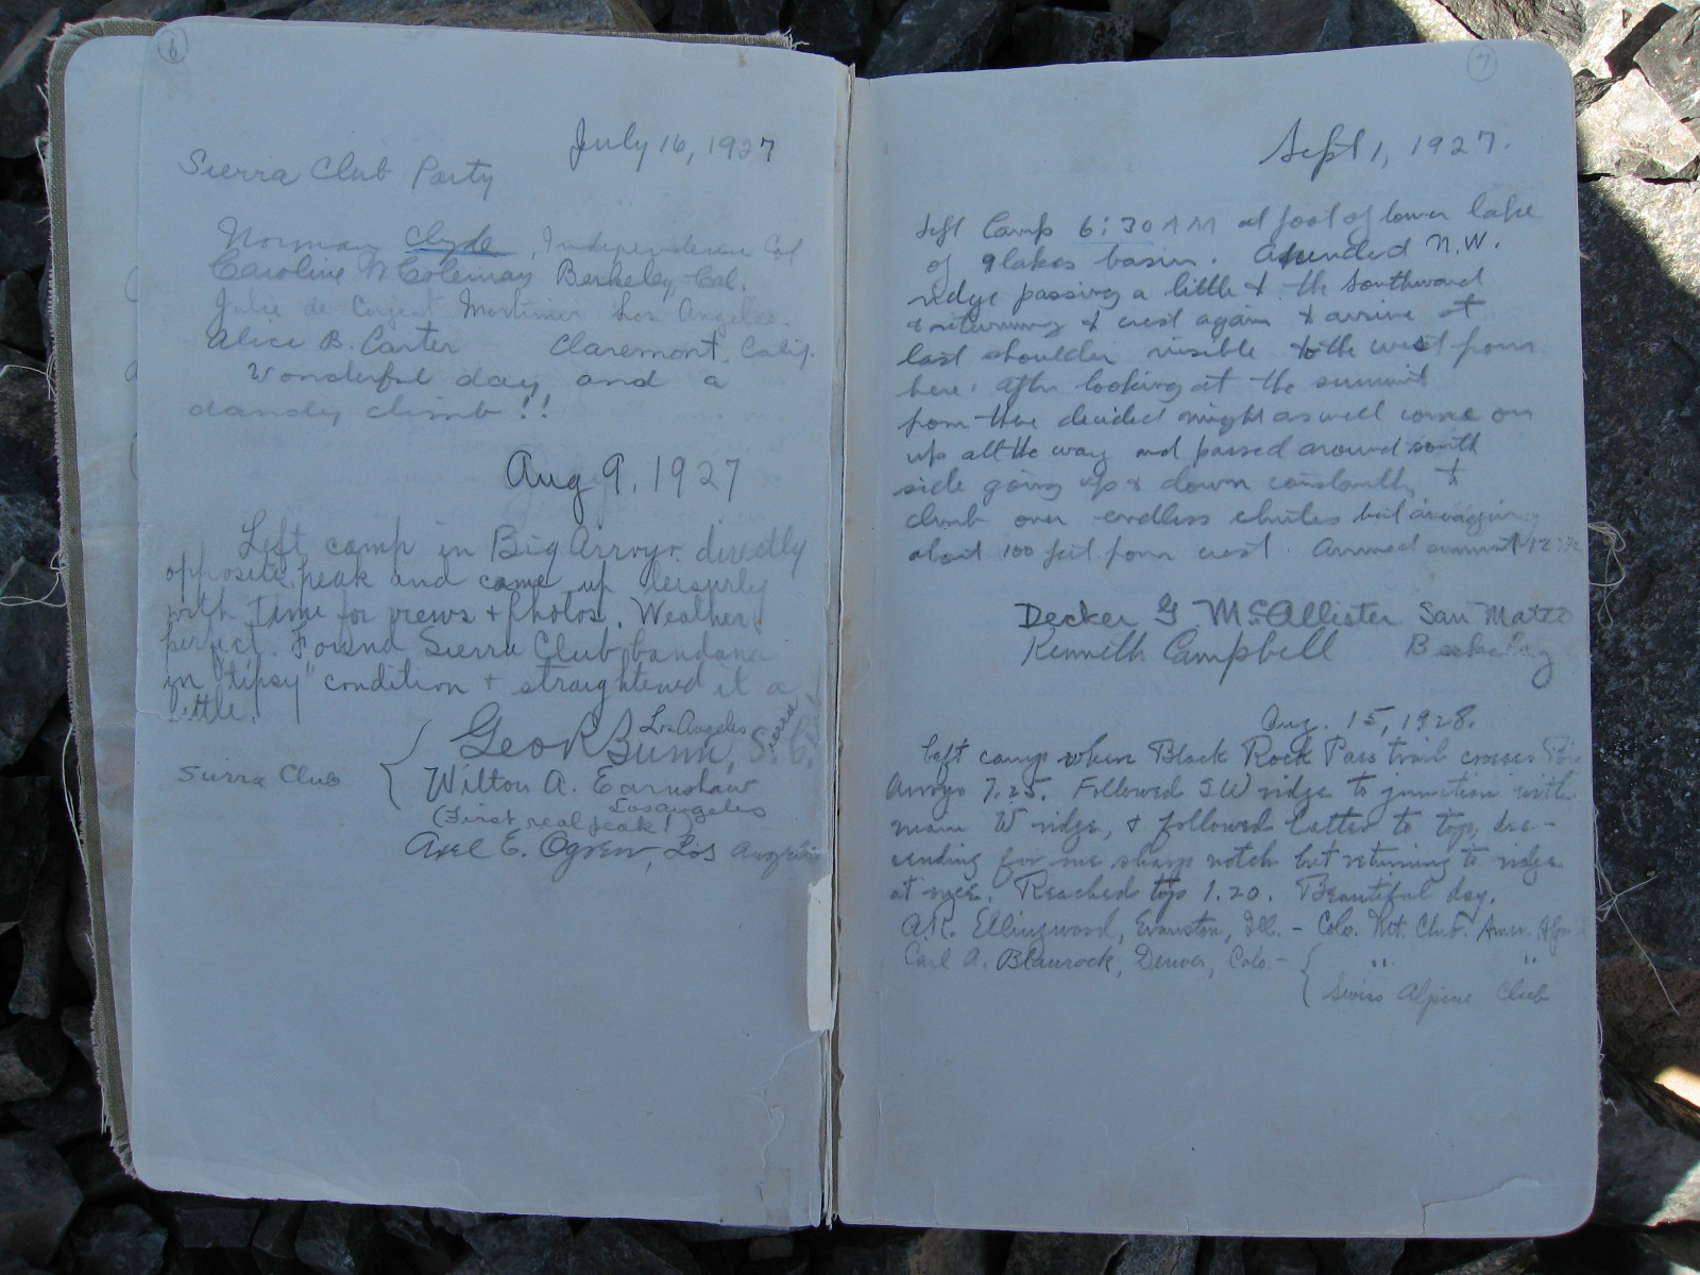 6
July 16, 1927
Sierra Club Party
Norman Clyde, Independence Cal
Caroline Coleman Berkeley, Cal.
Julie de Mortimer Los Angeles.
Alice B. Carter Claremont, Calif.
Wonderful day and a
dandy climb!!
Aug 9, 1927
Left camp in Big Arroyo directly
opposite peak and came up leisurly
with time for views + photos. Weather
perfect. Found Sierra Club bandana
in "tipsy" condition + straightened it a
little.
Los Angeles
Sierra Club
Wilton A. Earnshaw
Los Angeles
(First real peak!
Axel E. Ogren, Los Angeles
7
Sept 1, 1927.
Left Camp 6:30 AM at foot of lower lake
of 9 lakes basin. Ascended N.W.
ridge passing a little to the southward
& returning to crest again to arrive at
last shoulder visible to the west from
here. After looking at the summit
from there decided might as well come on
up all the way and passed around south
side going up & down constantly to
climb over endless chutes but averaging
about 100 feet from crest. Arrived summit
Decker G. McAllister San Mateo
Kenneth Campbell Berkeley
Aug. 15, 1928.
Left camp where Black Rock Pass trail crosses Big
Arroyo 7.25. Followed SW ridge to junction with
main W ridge, & followed latter to top, des-
cending for one sharp notch but returning to ridge
at once. Reached top 1.20. Beautiful day.
A.R. Ellingwood, Evanston, Ill. - Colo. Mt. Club. Amer.
Carl A. Blaurock, Denver, Colo. - { " "
{ Swiss Alpine Club